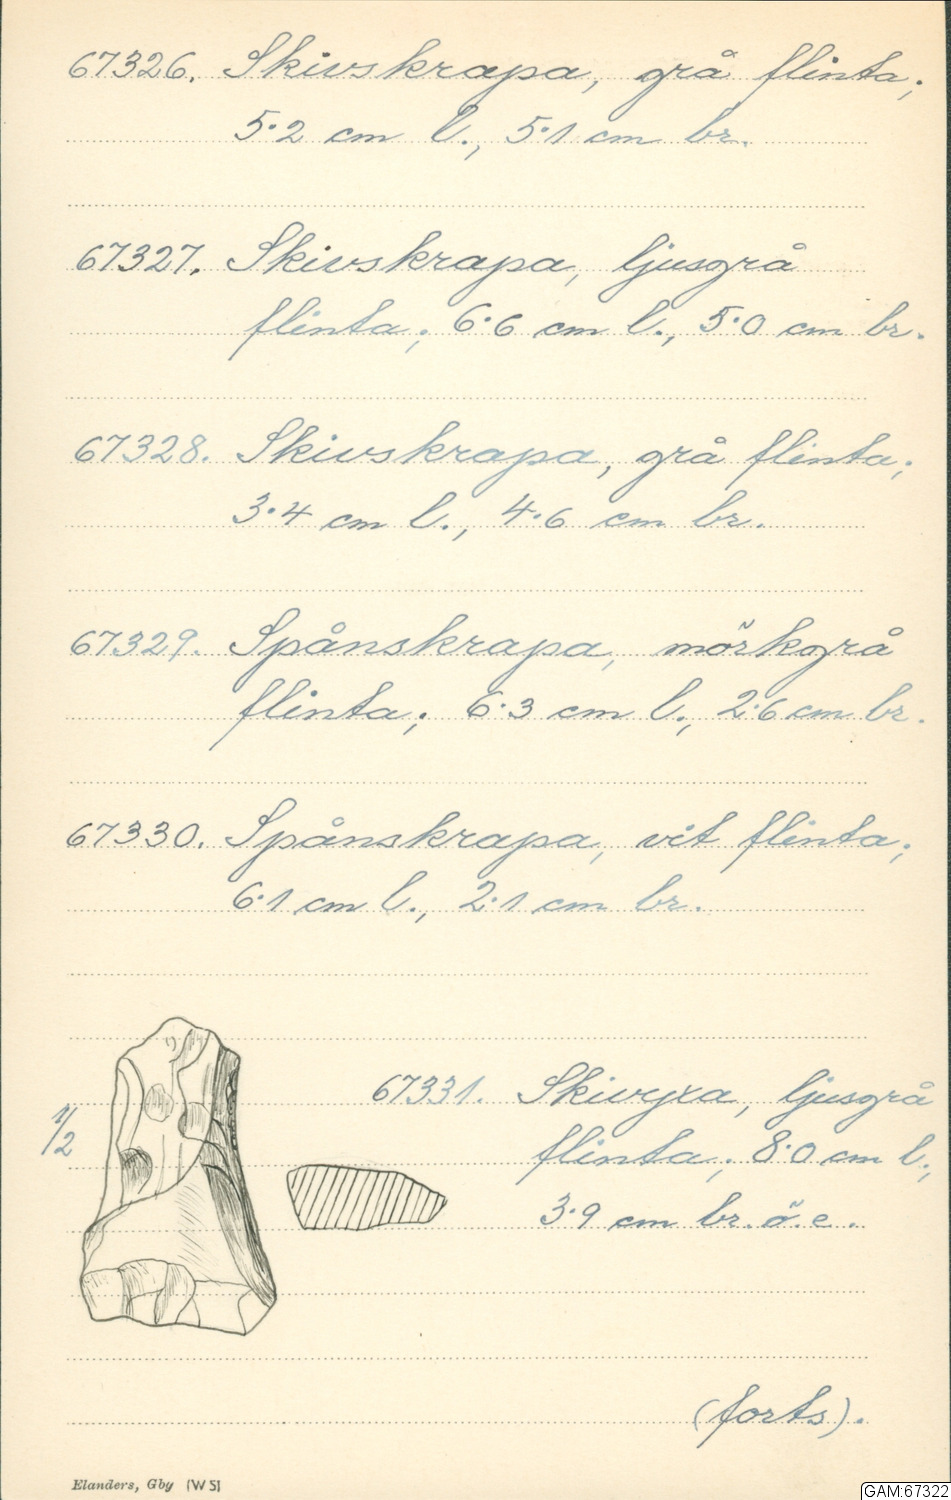 67326. Skivskrapa, grå flinta;
5·2 cm l., 5·1 cm br.
67327. Skivskrapa, ljusgrå
flinta; 6·6 cm l., 5·0 cm br.
67328. Skivskrapa, grå flinta;
3·4 cm l., 4·6 cm br.
67329. Spånskrapa, mörkgrå
flinta; 6·3 cm l., 2·6 cm br.
67330. Spånskrapa, vit flinta;
6·1 cm l., 2·1 cm br.
1/2
67331. Skivyxa, ljusgrå
flinta; 8·0 cm l.,
3·9 cm br. ö. e.
(forts).
Elanders, Gby (W5)
GAM:67322